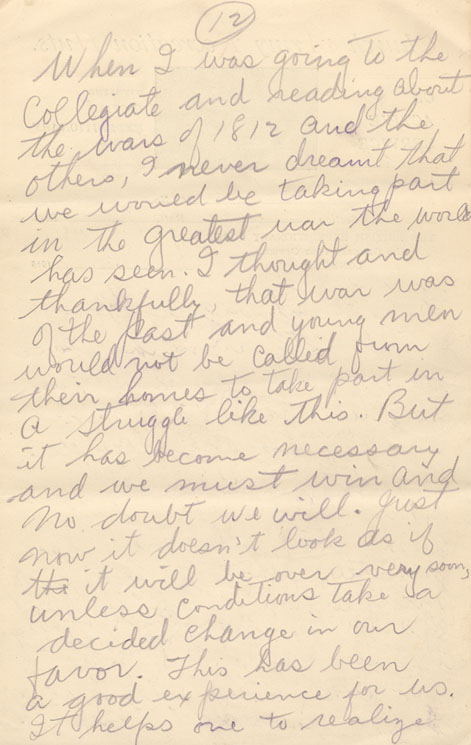 12
When I was going to the
Collegiate and reading about
the wars of 1812 and the
others, I never dreamt that
we would be taking part
in the greatest war the world
has seen. I thought and
thankfully, that war was
of the past and young men
would not be called from
their homes to take part in
a struggle like this. But
it has become necessary
and we must win and
no doubt we will. Just
now it doesn't look as if
it will be over very soon,
unless conditions take a
decided change in our
favor. This has been
a good experience for us.
It helps one to realize